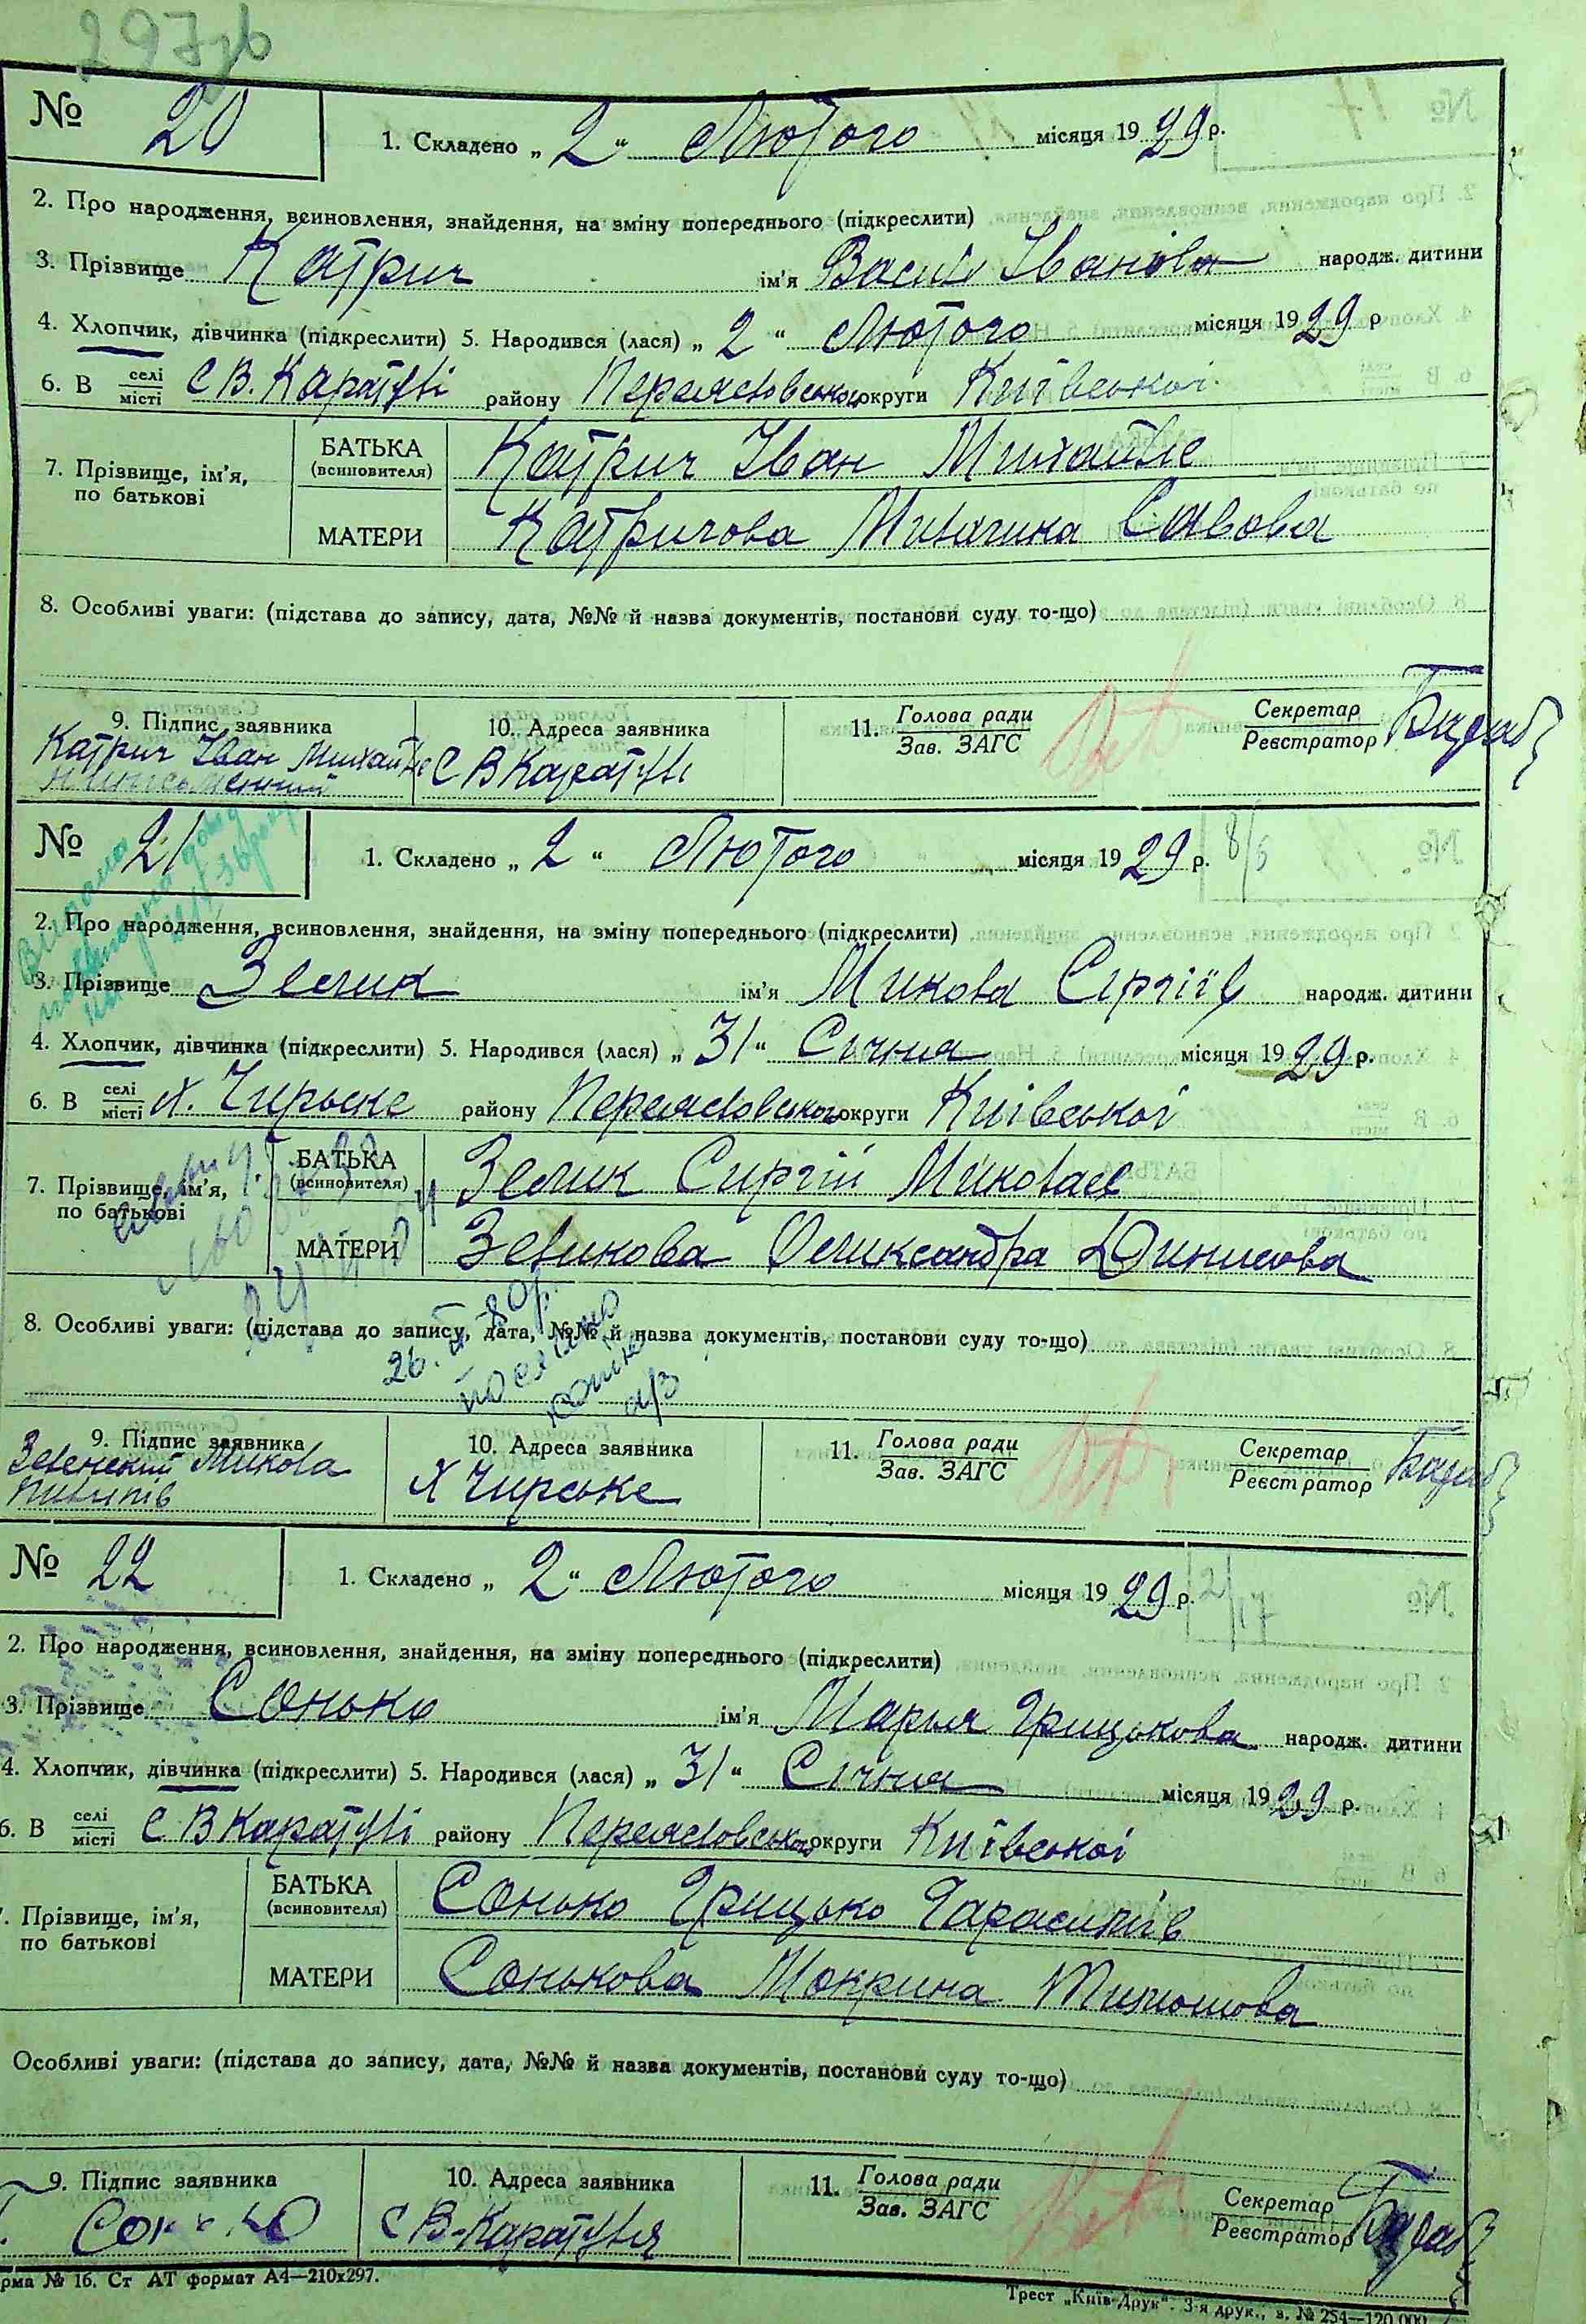 297зв
№ 20
1. Складено „ 2 “ Лютого місяця 1929 р.
2. Про народження, всиновлення, знайдення, на зміну попереднього (підкреслити)
3. Прізвище Катрич ім'я Василь Іванова народж. дитини
4. Хлопчик, дівчинка (підкреслити) 5. Народився (лася) „ 2 “ Лютого місяця 1929 р
6. В селі/місті С В. Каратулі району Переяславського округи Київської
7. Прізвище, ім'я, по батькові
БАТЬКА (всиновителя) Катрич Іван Михайле
МАТЕРИ Катричова Савова
8. Особливі уваги: (підстава до запису, дата, №№ й назва документів, постанови суду то-що)
9. Підпис заявника 10. Адреса заявника 11. Голова ради Зав. ЗАГС Секретар Реєстратор
Катрич Іван С В Каратулі
№ 21
1. Складено „ 2 “ Лютого місяця 1929 р. 8/5
2. Про народження, всиновлення, знайдення, на зміну попереднього (підкреслити)
3. Прізвище Зелик ім'я Микола Сиргіїв народж. дитини
4. Хлопчик, дівчинка (підкреслити) 5. Народився (лася) „ 31 “ Січня місяця 1929 р.
6. В селі/місті х. Чирьске району Переяславського округи Київської
7. Прізвище, ім'я, по батькові
БАТЬКА (всиновителя) Зелик Сиргій Миколаєв
МАТЕРИ Зеликова Оликсандра Динисова
8. Особливі уваги: (підстава до запису, дата, №№ й назва документів, постанови суду то-що)
9. Підпис заявника 10. Адреса заявника 11. Голова ради Зав. ЗАГС Секретар Реєстратор
Зеленский Микола х Чирське
Пилипів
№ 22
1. Складено „ 2 “ Лютого місяця 1929 р. 2/17
2. Про народження, всиновлення, знайдення, на зміну попереднього (підкреслити)
3. Прізвище Сонько ім'я Марья Грицькова народж. дитини
4. Хлопчик, дівчинка (підкреслити) 5. Народився (лася) „ 31 “ Січня місяця 1929 р.
6. В селі/місті С В Каратулі району Переяславського округи Київської
. Прізвище, ім'я, по батькові
БАТЬКА (всиновителя) Сонько Грицько
МАТЕРИ Сонькова Мокрина Тимошова
Особливі уваги: (підстава до запису, дата, №№ й назва документів, постанови суду то-що)
9. Підпис заявника 10. Адреса заявника 11. Голова ради Зав. ЗАГС Секретар Реєстратор
Сонько С В-Каратуля
рма № 16. Ст АТ формат А4—210x297.
Трест „Київ-Друк“. 3-я друк., з. № 254—120.000